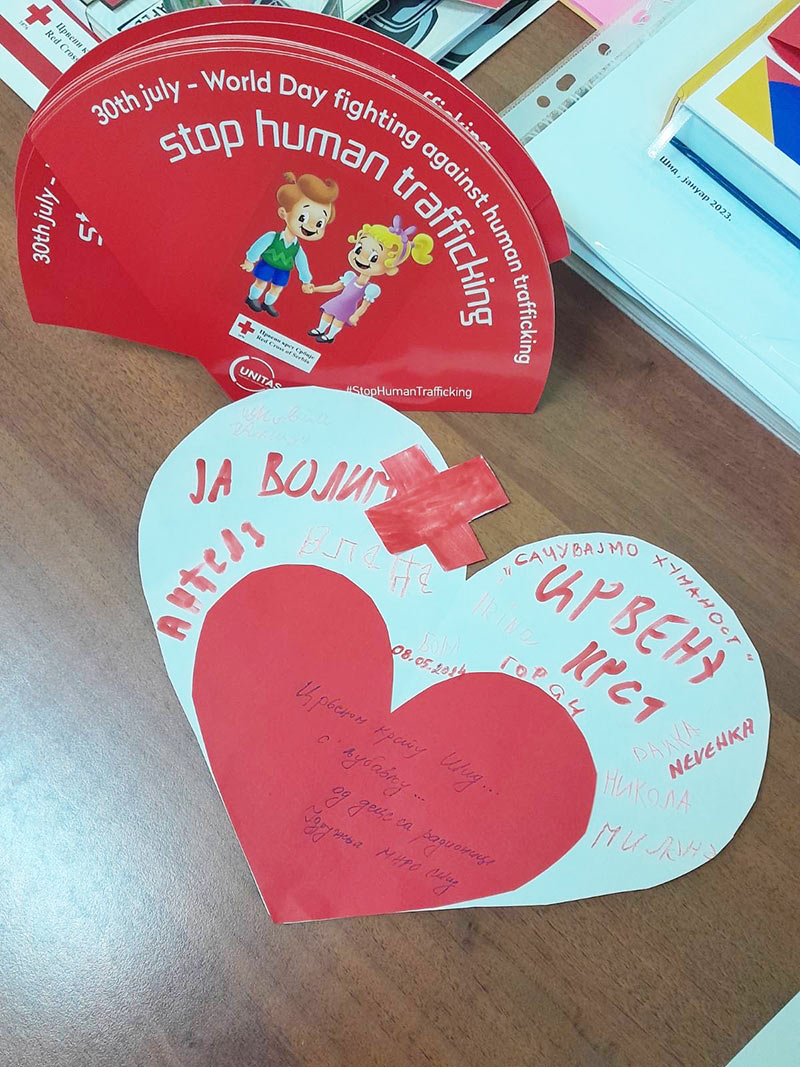 Црвени к
Red Cross
30th july - World Day fighting against human trafficking
stop human trafficking
30th july -
trafficking
Црвени крст Србије
Red Cross of Serbia
UNITAS
#StopHumanTrafficking
Шид, јануар 2023.
ЈА ВОЛИМ
ЦРВЕНИ
КРСТ
„САЧУВАЈМО ХУМАНОСТ“
08.05.2024
NEVENKA
НИКОЛА
Црвеном крсту Шид...
с љубављу...
од деце са радионице
Удружења МНРО Шид